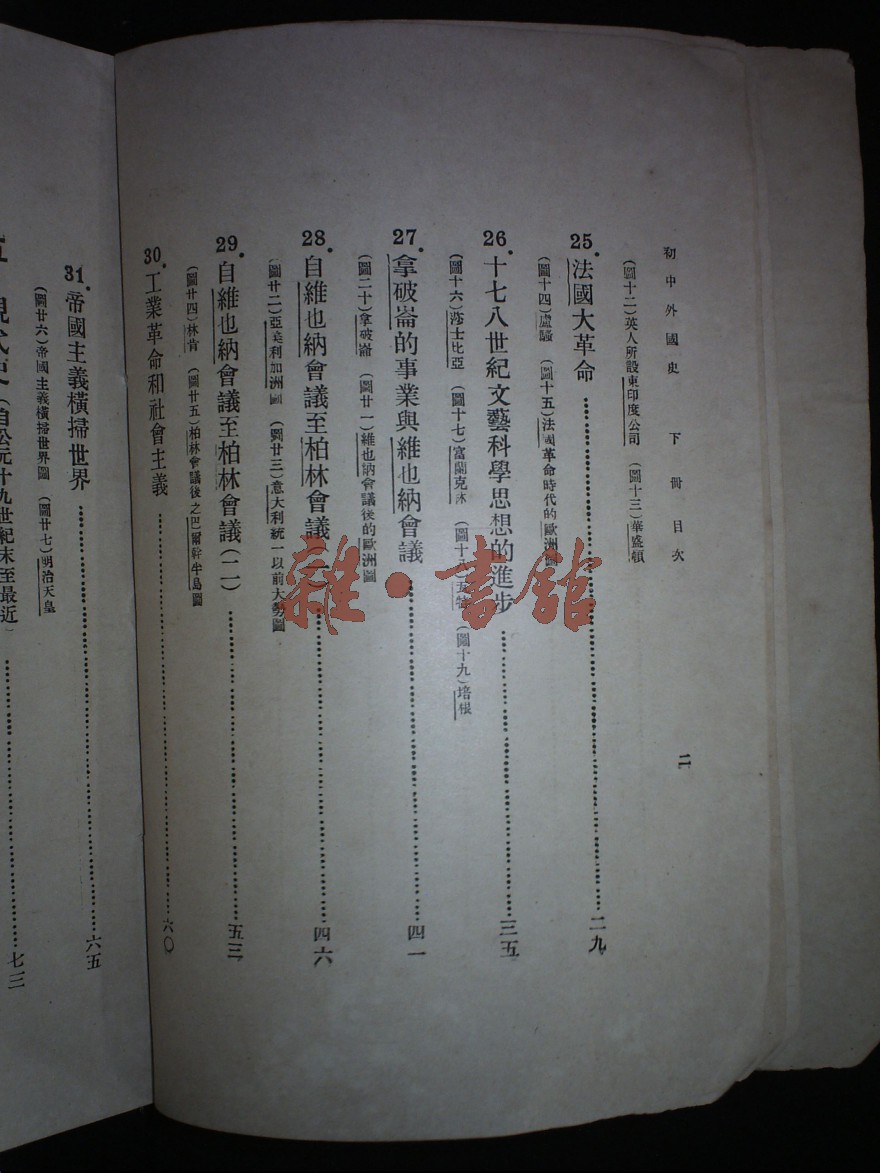 初中外國史 下冊目次 二
(圖十二)英人所設東印度公司 (圖十三)華盛頓
25.法國大革命……二九
(圖十四)盧騷 (圖十五)法國革命時代的歐洲圖
26.十七八世紀文藝科學思想的進步……三五
(圖十六)莎士比亞 (圖十七)富蘭克林 (圖十八)瓦特 (圖十九)培根
27.拿破崙的事業與維也納會議……四一
(圖二十)拿破崙 (圖廿一)維也納會議後的歐洲圖
28.自維也納會議至柏林會議(一)……四六
(圖廿二)亞美利加洲圖 (圖廿三)意大利統一以前大勢圖
29.自維也納會議至柏林會議(二)……五三
(圖廿四)林肯 (圖廿五)柏林會議後之巴爾幹半島圖
30.工業革命和社會主義……六〇
31.帝國主義橫掃世界……六五
(圖廿六)帝國主義橫掃世界圖 (圖廿七)明治天皇
現代史(自公元十九世紀末至最近)……七三
雜·書館